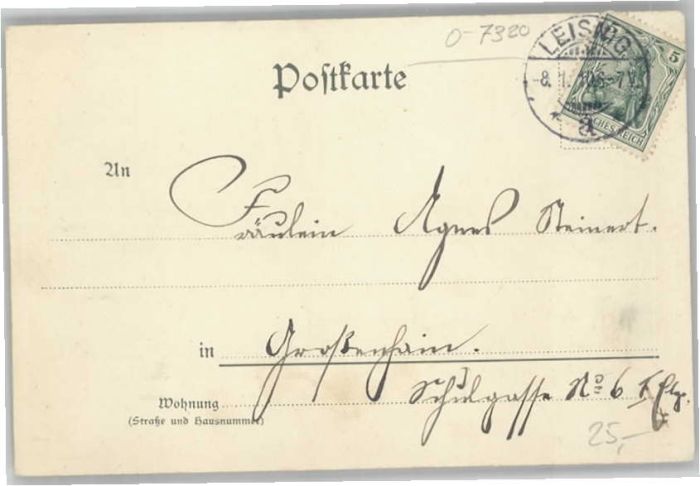 0-7320
LEISNIG
-8. 1. 10. 6-7 V.
a
5
DEUTSCHES REICH
Postkarte
An
Fräulein Agnes Steinert.
in Großenhain.
Wohnung Schulgasse No 6
(Straße und Hausnummer)
25,-